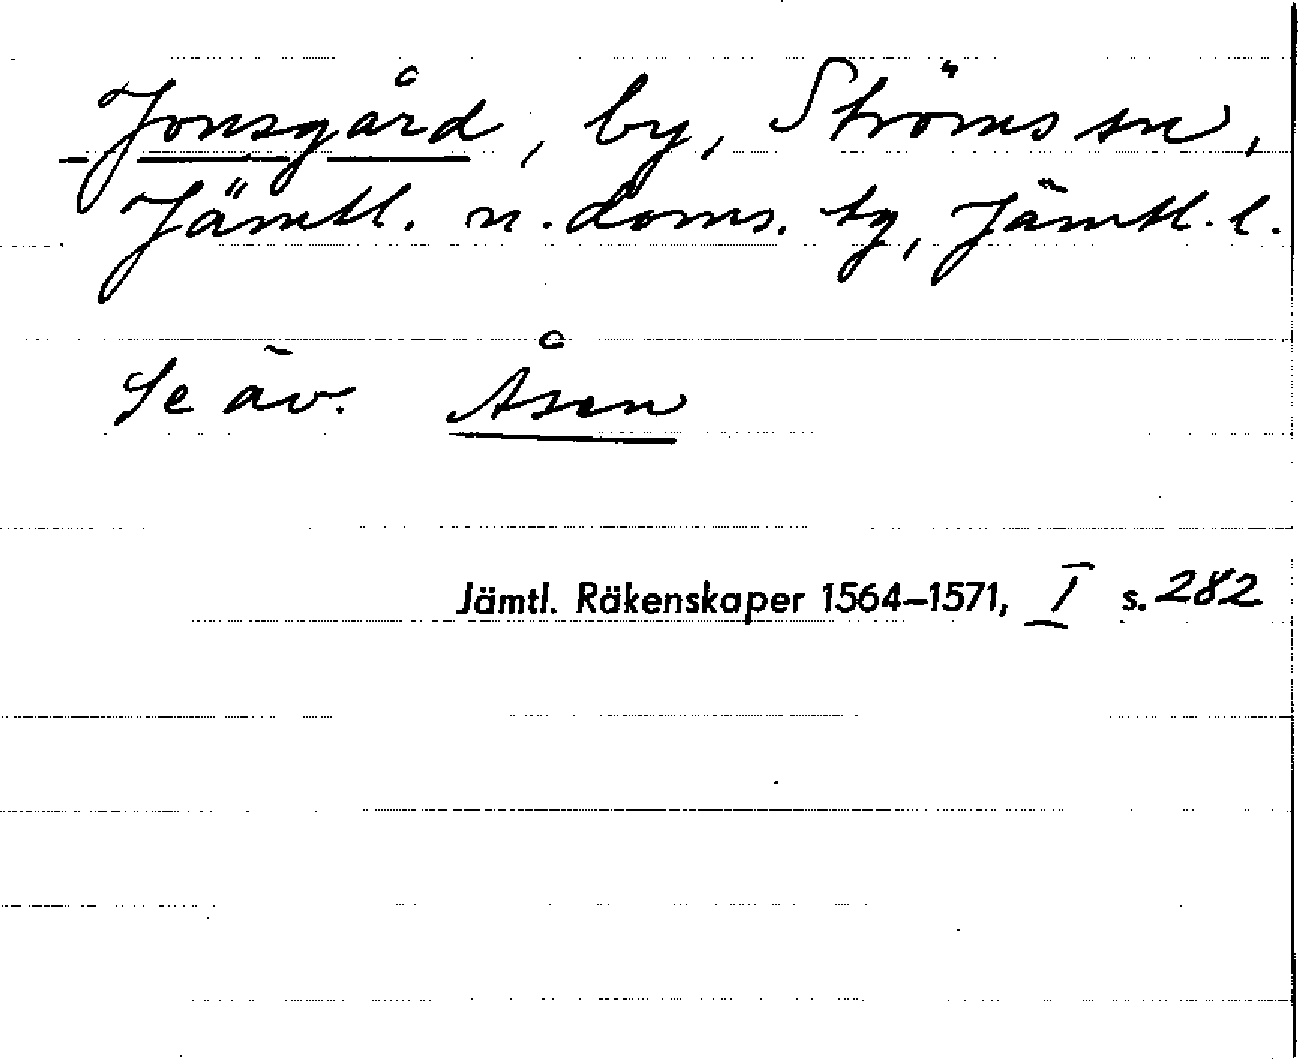 Jonsgård, by, Ströms sn,
Jämtl. n. doms. tg, Jämtl. l.
Se äv. Åsen
Jämtl. Räkenskaper 1564–1571, I s. 282